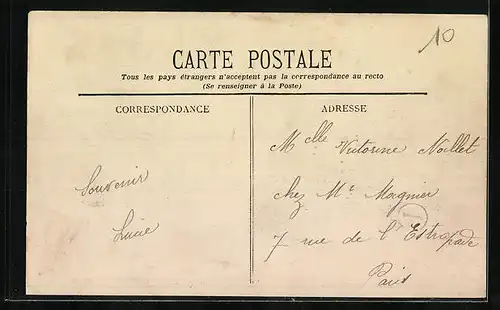 10
CARTE POSTALE
Tous les pays étrangers n'acceptent pas la correspondance au recto
(Se renseigner à la Poste)
CORRESPONDANCE
Souvenir
Lucie
ADRESSE
Melle Victorine Noillet
chez Mr Magnier
7 rue de l'Estrapade
Paris